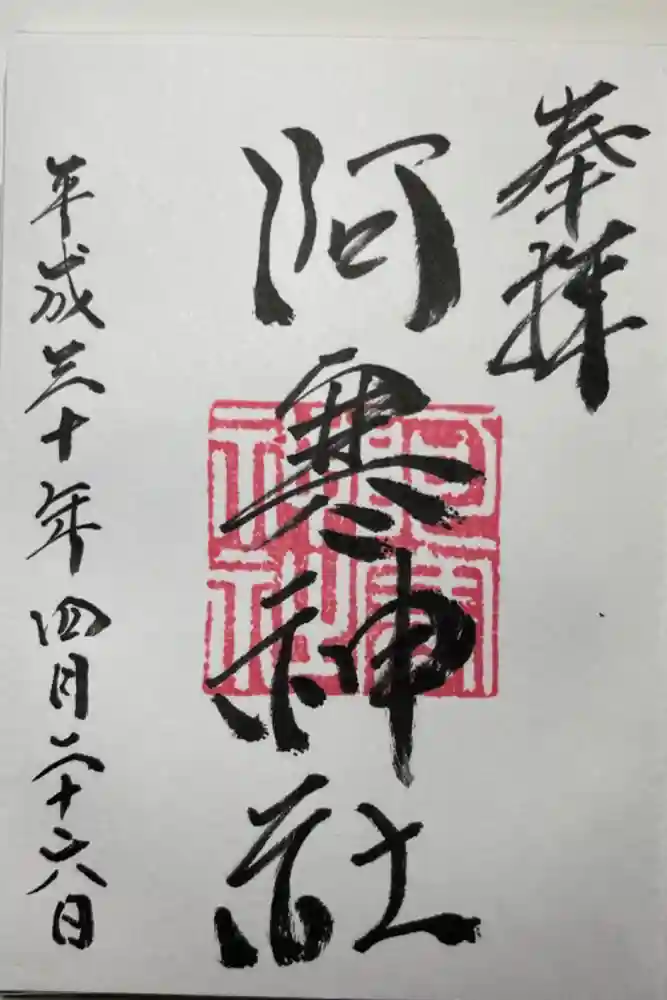 奉拝
阿寒神社
平成三十年四月二十六日
阿寒神社